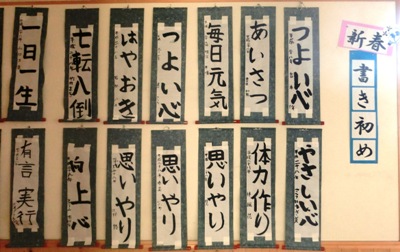 新春
書き初め
つよい心
あいさつ
毎日元気
つよい心
はやおき
七転八倒
一日一生
やさしい心
体力作り
思いやり
思いやり
思いやり
向上心
有言実行